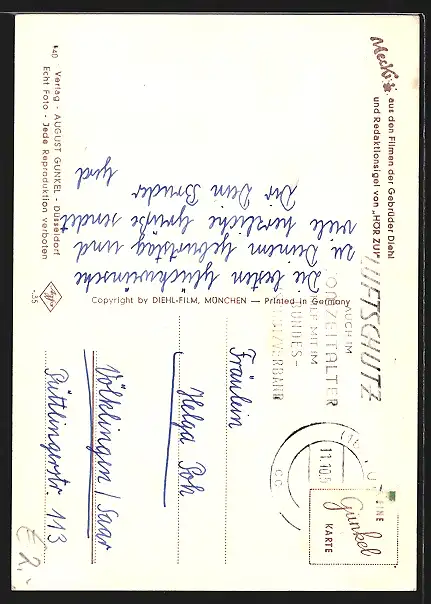 Mecki
aus den Filmen der Gebrüder Diehl
und Redaktionsigel von „HÖR ZU!"
Die besten Glückwünsche
zu Deinem Geburtstag und
viele herzliche Grüße sendet
Dir Dein Bruder
Gerd
Verlag - AUGUST GUNKEL - Düsseldorf
Echt Foto - Jede Reproduktion verboten
Copyright by DIEHL-FILM, MÜNCHEN — Printed in Germany
Agfa
LUFTSCHUTZ
AUCH IM
ZEITALTER
MIT IM
BUNDES-
11.10.5
EINE
Gunkel
KARTE
Fräulein
Helga Poh
Völklingen / Saar
Püttlingerstr. 113